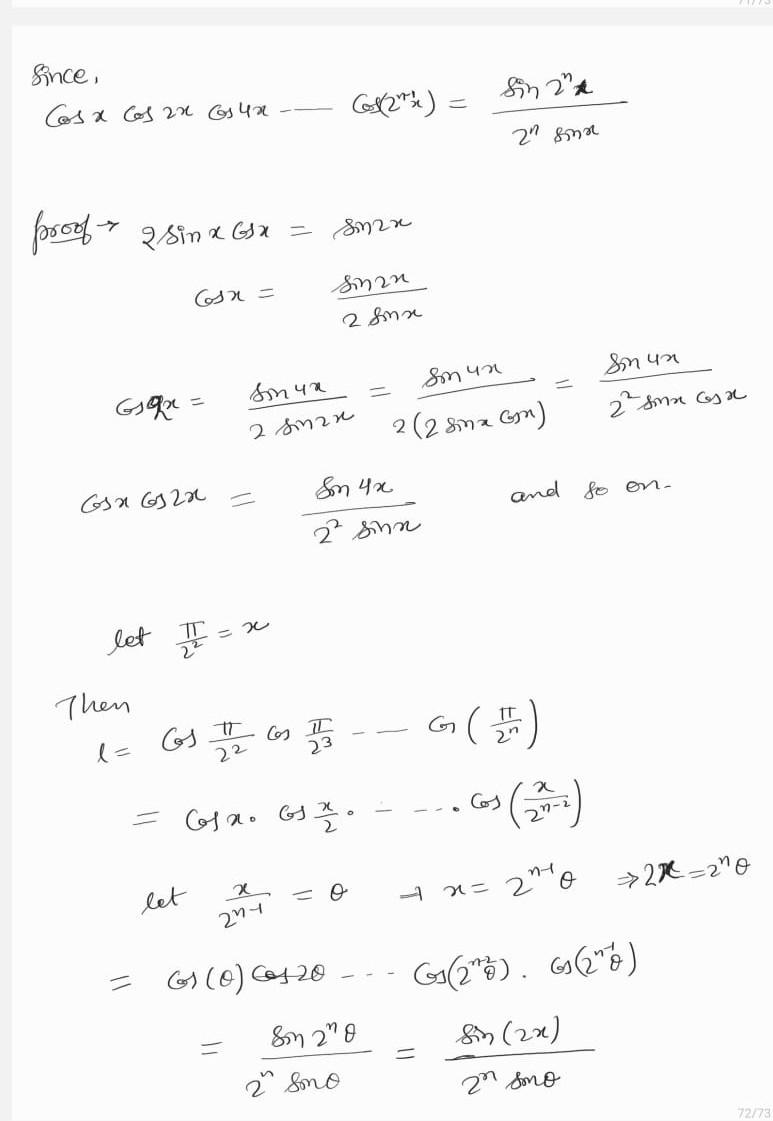 71/73
Since,
Cos x Cos 2x Cos 4x --- Cos(2^{n-1}x) = \frac{Sin 2^n x}{2^n sin x}
proof → 2 sin x Cos x = sin 2x
Cos x = \frac{sin 2x}{2 sin x}
Cos 2x = \frac{sin 4x}{2 sin 2x} = \frac{sin 4x}{2(2 sin x Cos x)} = \frac{sin 4x}{2^2 sin x Cos x}
Cos x Cos 2x = \frac{sin 4x}{2^2 sin x} and so on.
let \frac{π}{2^2} = x
Then
l = Cos \frac{π}{2^2} Cos \frac{π}{2^3} --- Cos(\frac{π}{2^n})
= Cos x . Cos \frac{x}{2} . - --- . Cos(\frac{x}{2^{n-2}})
let \frac{x}{2^{n-1}} = θ → x = 2^{n-1}θ ⇒ 2x = 2^nθ
= Cos(θ) Cos 2θ --- Cos(2^{n-2}θ) . Cos(2^{n-1}θ)
= \frac{Sin 2^nθ}{2^n Sin θ} = \frac{Sin(2x)}{2^n Sin θ}
72/73